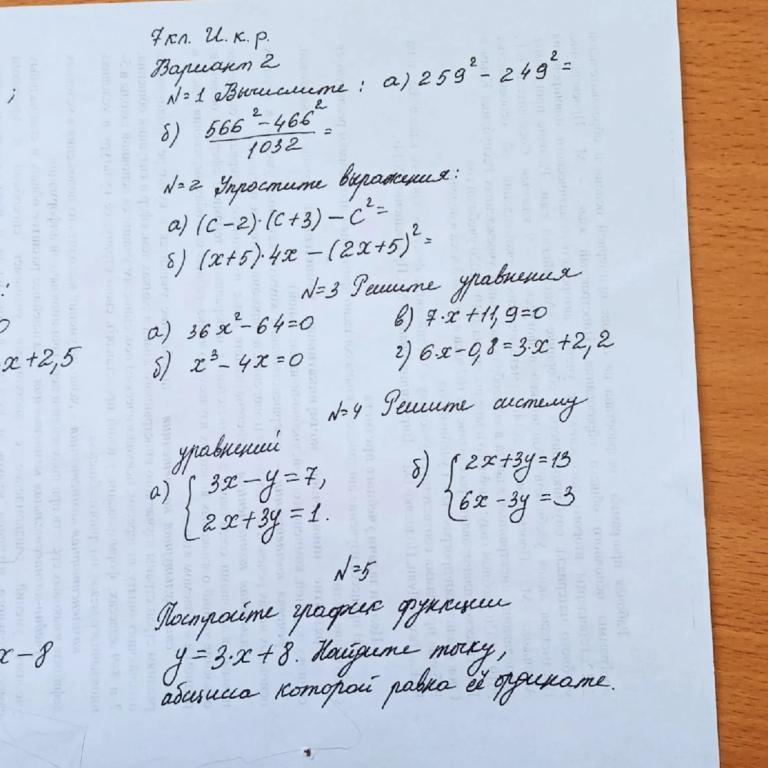 7кл. И.к.р.
Вариант 2
N=1 Вычислите: а) 259² - 249² =
б) (566² - 466²)/1032 =
N=2 Упростите выражения:
а) (с-2)·(с+3) - с² =
б) (x+5)·4x - (2x+5)² =
N=3 Решите уравнения
а) 36x² - 64=0 в) 7·x+11,9=0
б) x³ - 4x=0 г) 6x-0,8=3·x+2,2
N=4 Решите систему
уравнений
а) { 3x-y=7, б) { 2x+3y=13
2x+3y=1. 6x-3y=3
N=5
Постройте график функции
y=3·x+8. Найдите точку,
абцисса которой равна её ординате.
;
:
0
x+2,5
x-8